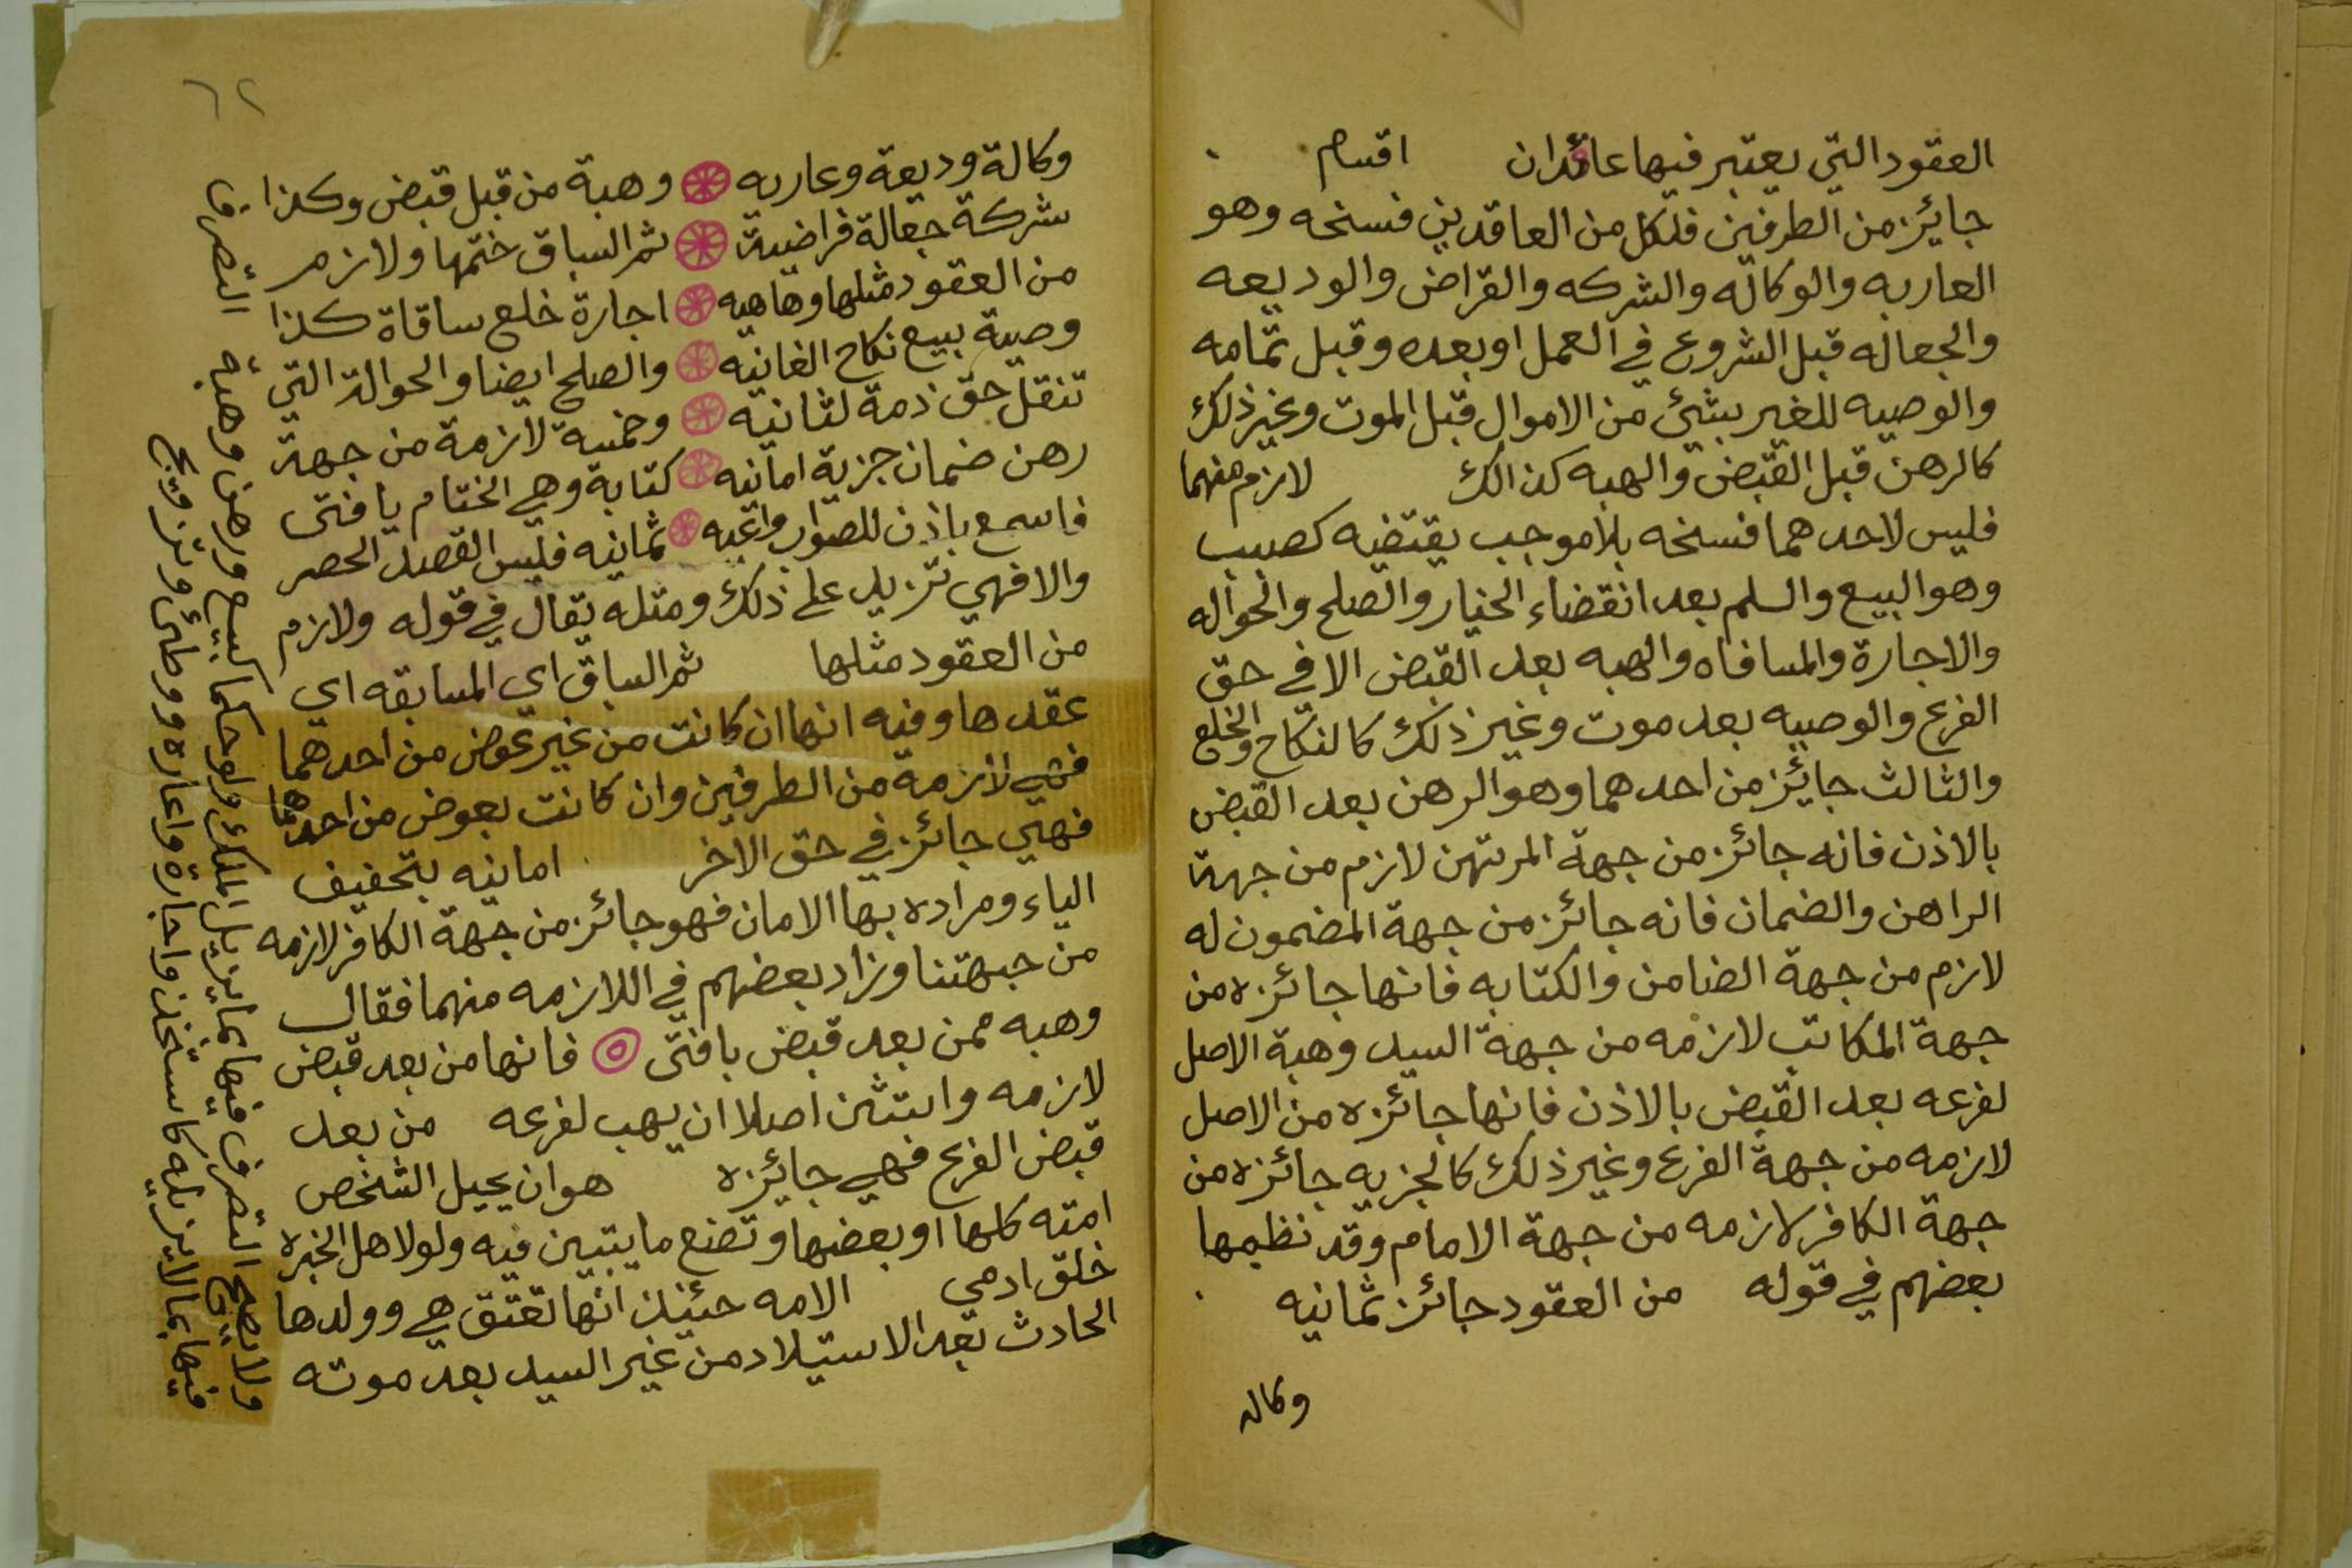 العقود التي يعتبر فيها عاقدان اقسام
جايز من الطرفين فلكل من العاقدين فسخه وهو
العاريه والوكاله والشركه والقراض والوديعه
والجعاله قبل الشروع في العمل اوبعده وقبل تمامه
والوصيه للغير بشئ من الاموال قبل الموت وغير ذلك
كالرهن قبل القبض والهبه كذالك لازم منهما
فليس لاحدهما فسخه بلا موجب يقتضيه كصبب
وهو البيع والسلم بعد انقضاء الخيار والصلح والحواله
والاجارة والمساقاه والهبه بعد القبض الا في حق
الفرع والوصيه بعد موت وغير ذلك كالنكاح والخلع
والثالث جايز من احدهما وهو الرهن بعد القبض
بالاذن فانه جائز من جهة المرتهن لازم من جهة
الراهن والضمان فانه جائز من جهة المضمون له
لازم من جهة الضامن والكتابه فانها جائزه من
جهة المكاتب لازمه من جهة السيد وهبة الاصل
لفرعه بعد القبض بالاذن فانها جائزه من الاصل
لازمه من جهة الفرع وغير ذلك كالجزيه جائزه من
جهة الكافر لازمه من جهة الامام وقد نظمها
بعضهم في قوله من العقود جائز ثمانيه
وكاله
٦٢
وكالة وديعة وعاريه وهبة من قبل قبض وكذا
شركة جعالة قراضية ثم السباق ختمها ولازم
من العقود مثلها وهاهيه اجارة خلع ساقاة كذا
وصية بيع نكاح الغانيه والصلح ايضا والحوالة التي
تنقل حق ذمة لثانيه وخمسة لازمة من جهة
رهن ضمان جزية امانيه كتابة وهي الختام يا فتى
فاسمع باذن للصواب واعيه ثمانيه فليس القصد الحصر
والا فهي تزيد على ذلك ومثله يقال في قوله ولازم
من العقود مثلها ثم السباق اي المسابقه اي
عقدها وفيه انها ان كانت من غير عوض من احدهما
فهي لازمة من الطرفين وان كانت بعوض من احدهما
فهي جائز في حق الآخر امانيه بتخفيف
الياء ومراده بها الامان فهو جائز من جهة الكافر لازمه
من جهتنا وزاد بعضهم في اللازمه منهما فقال
وهبه ممن بعد قبض يا فتى فانها من بعد قبض
لازمه واستثن اصلا ان يهب لفرعه من بعد
قبض الفرع فهي جايزه هو ان يحيل الشخص
امته كلها او بعضها وتضع ما يتبين فيه ولو لاهل الخبره
خلق ادمي الامه حئينذ انها تعتق هي وولدها
الحادث بعد الاستيلاد من غير السيد بعد موته
ولا يصح التصرف فيها بما يزيل الملك ولو حكما كبيع ورهن وهبة التصرف
فيها بما لا يزيله كاستخدا واجارة واعاره ووطئ وتزويج